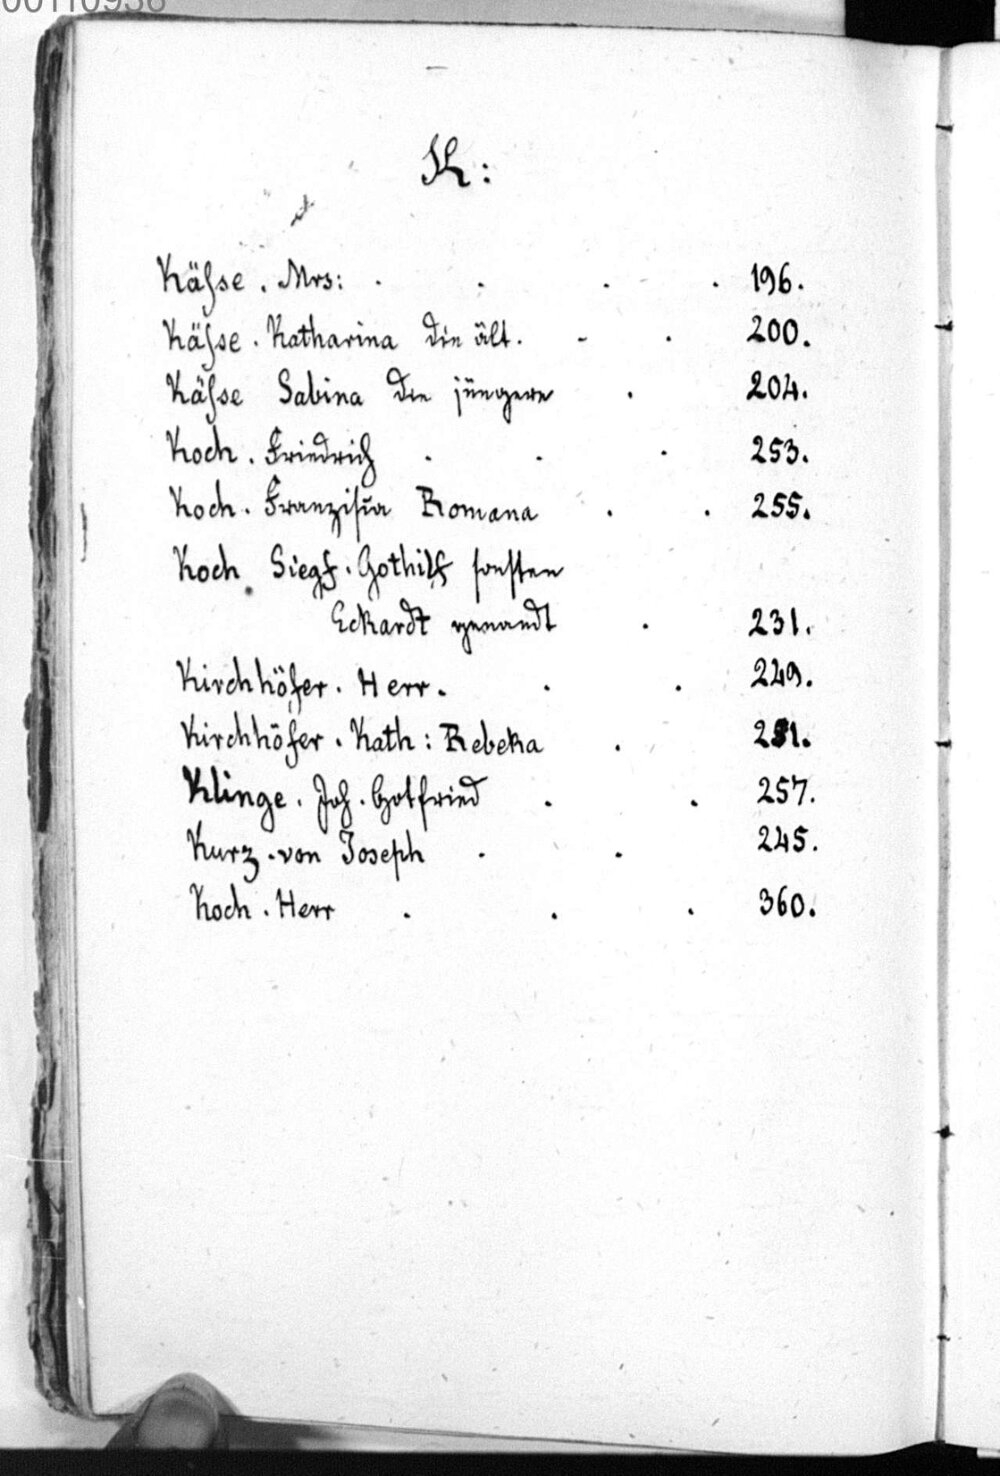 00110938
K:
Käſse . Mrs: . . . . 196.
Käſse . Katharina die ält. - . 200.
Käſse Sabina die jüngere . 204.
Koch . Friedrich . . . 253.
Koch . Franziska Romana . . 255.
Koch Siegf. Gothilf sonsten
Eckardt genandt . 231.
Kirchhöfer . Herr . . . 249.
Kirchhöfer . Kath: Rebeka .
Klinge . Joh . Gotfried . . 257.
Kurz . von Joseph . . 245.
Koch . Herr . . . 360.